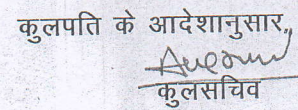 कुलपति के आदेशानुसार,
कुलसचिव